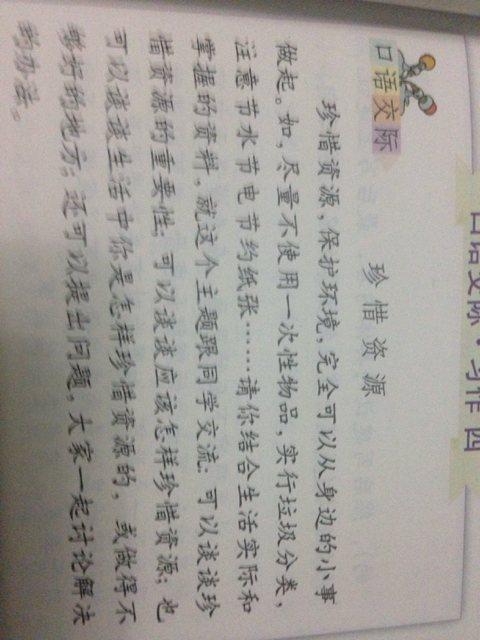 口语交际·习作四
口语交际
珍惜资源
珍惜资源,保护环境,完全可以从身边的小事
做起。如,尽量不使用一次性物品,实行垃圾分类,
注意节水节电节约纸张……请你结合生活实际和
掌握的资料,就这个主题跟同学交流:可以谈谈珍
惜资源的重要性;可以谈谈应该怎样珍惜资源;也
可以谈谈生活中你是怎样珍惜资源的,或做得不
够好的地方;还可以提出问题,大家一起讨论解决
的办法。